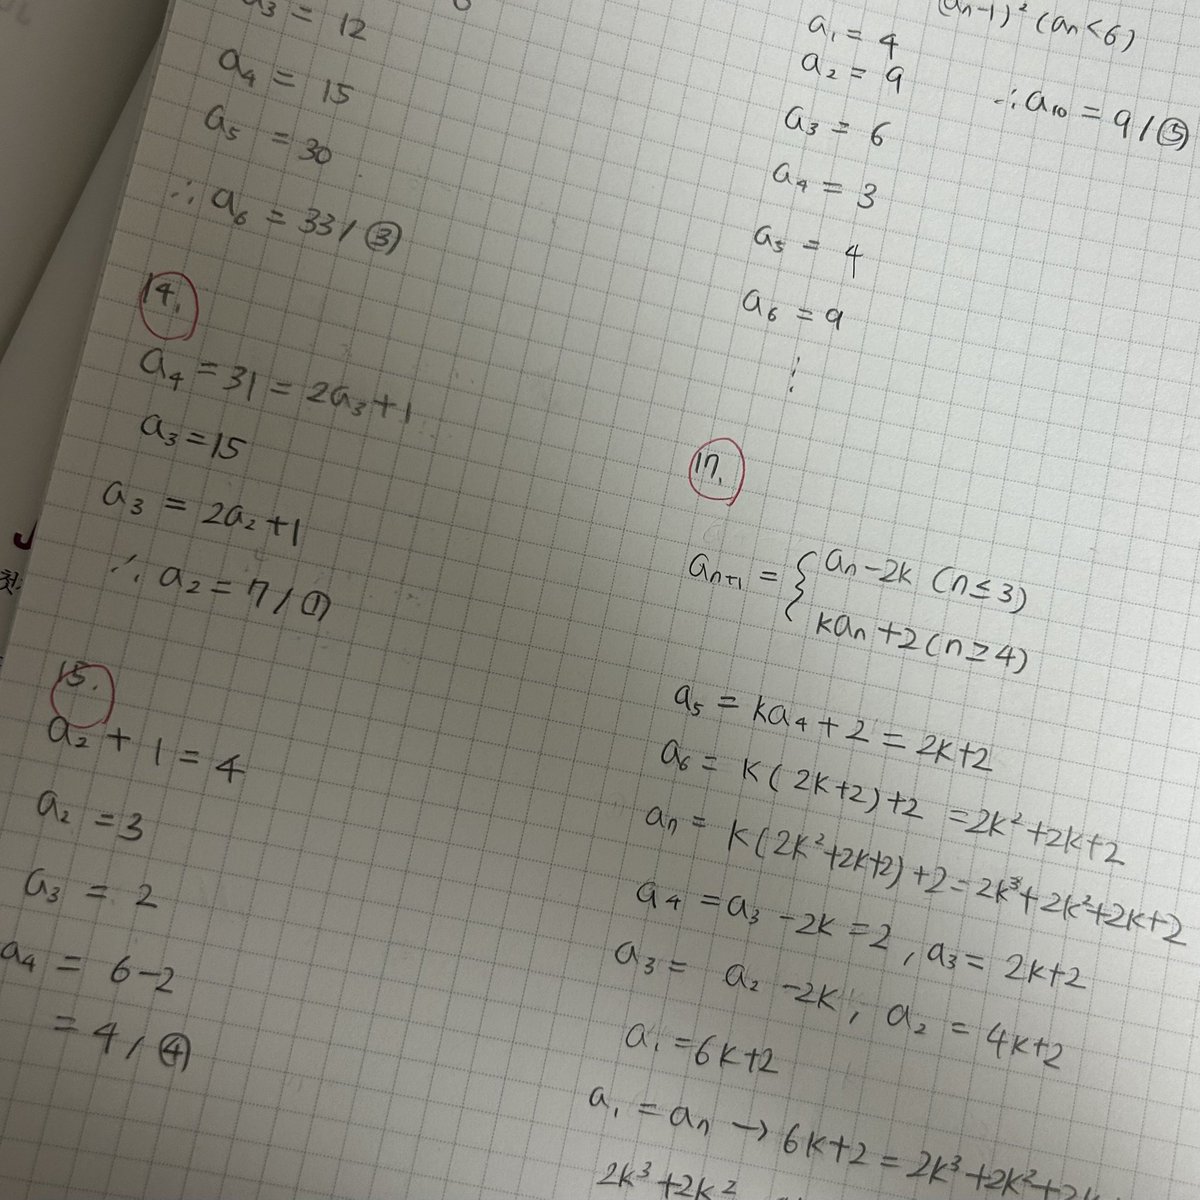 a₃ = 12
a₄ = 15
a₅ = 30
∴ a₆ = 33 / ③
14.
a₄ = 31 = 2a₃+1
a₃ = 15
a₃ = 2a₂+1
∴ a₂ = 7 / ①
15.
a₂ + 1 = 4
a₂ = 3
a₃ = 2
a₄ = 6-2
= 4 / ④
(aₙ-1)² (aₙ<6)
a₁ = 4
a₂ = 9
∴ a₁₀ = 9 / ⑤
a₃ = 6
a₄ = 3
a₅ = 4
a₆ = 9
⋮
17.
aₙ₊₁ = { aₙ-2k (n≤3)
kaₙ+2 (n≥4)
a₅ = ka₄+2 = 2k+2
a₆ = k(2k+2)+2 = 2k²+2k+2
a₇ = k(2k²+2k+2)+2 = 2k³+2k²+2k+2
a₄ = a₃-2k = 2, a₃ = 2k+2
a₃ = a₂-2k, a₂ = 4k+2
a₁ = 6k+2
a₁ = a₇ → 6k+2 = 2k³+2k²+2k
2k³+2k²